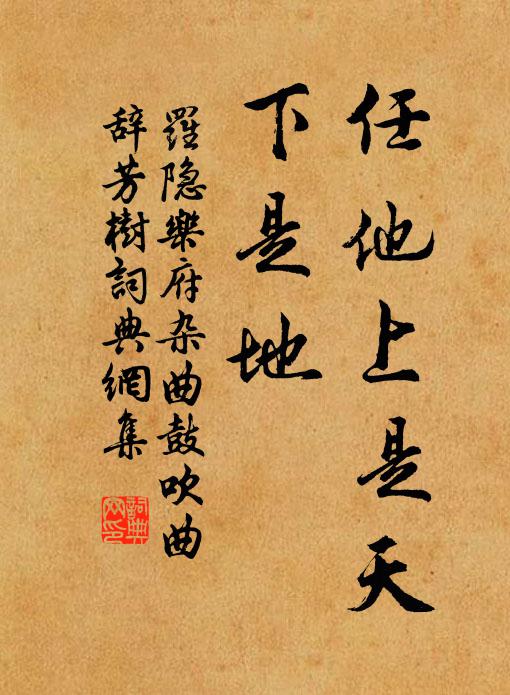 任他上是天
下是地
羅隐樂府杂曲鼓吹曲
辞芳樹詞典網集
詞典网印